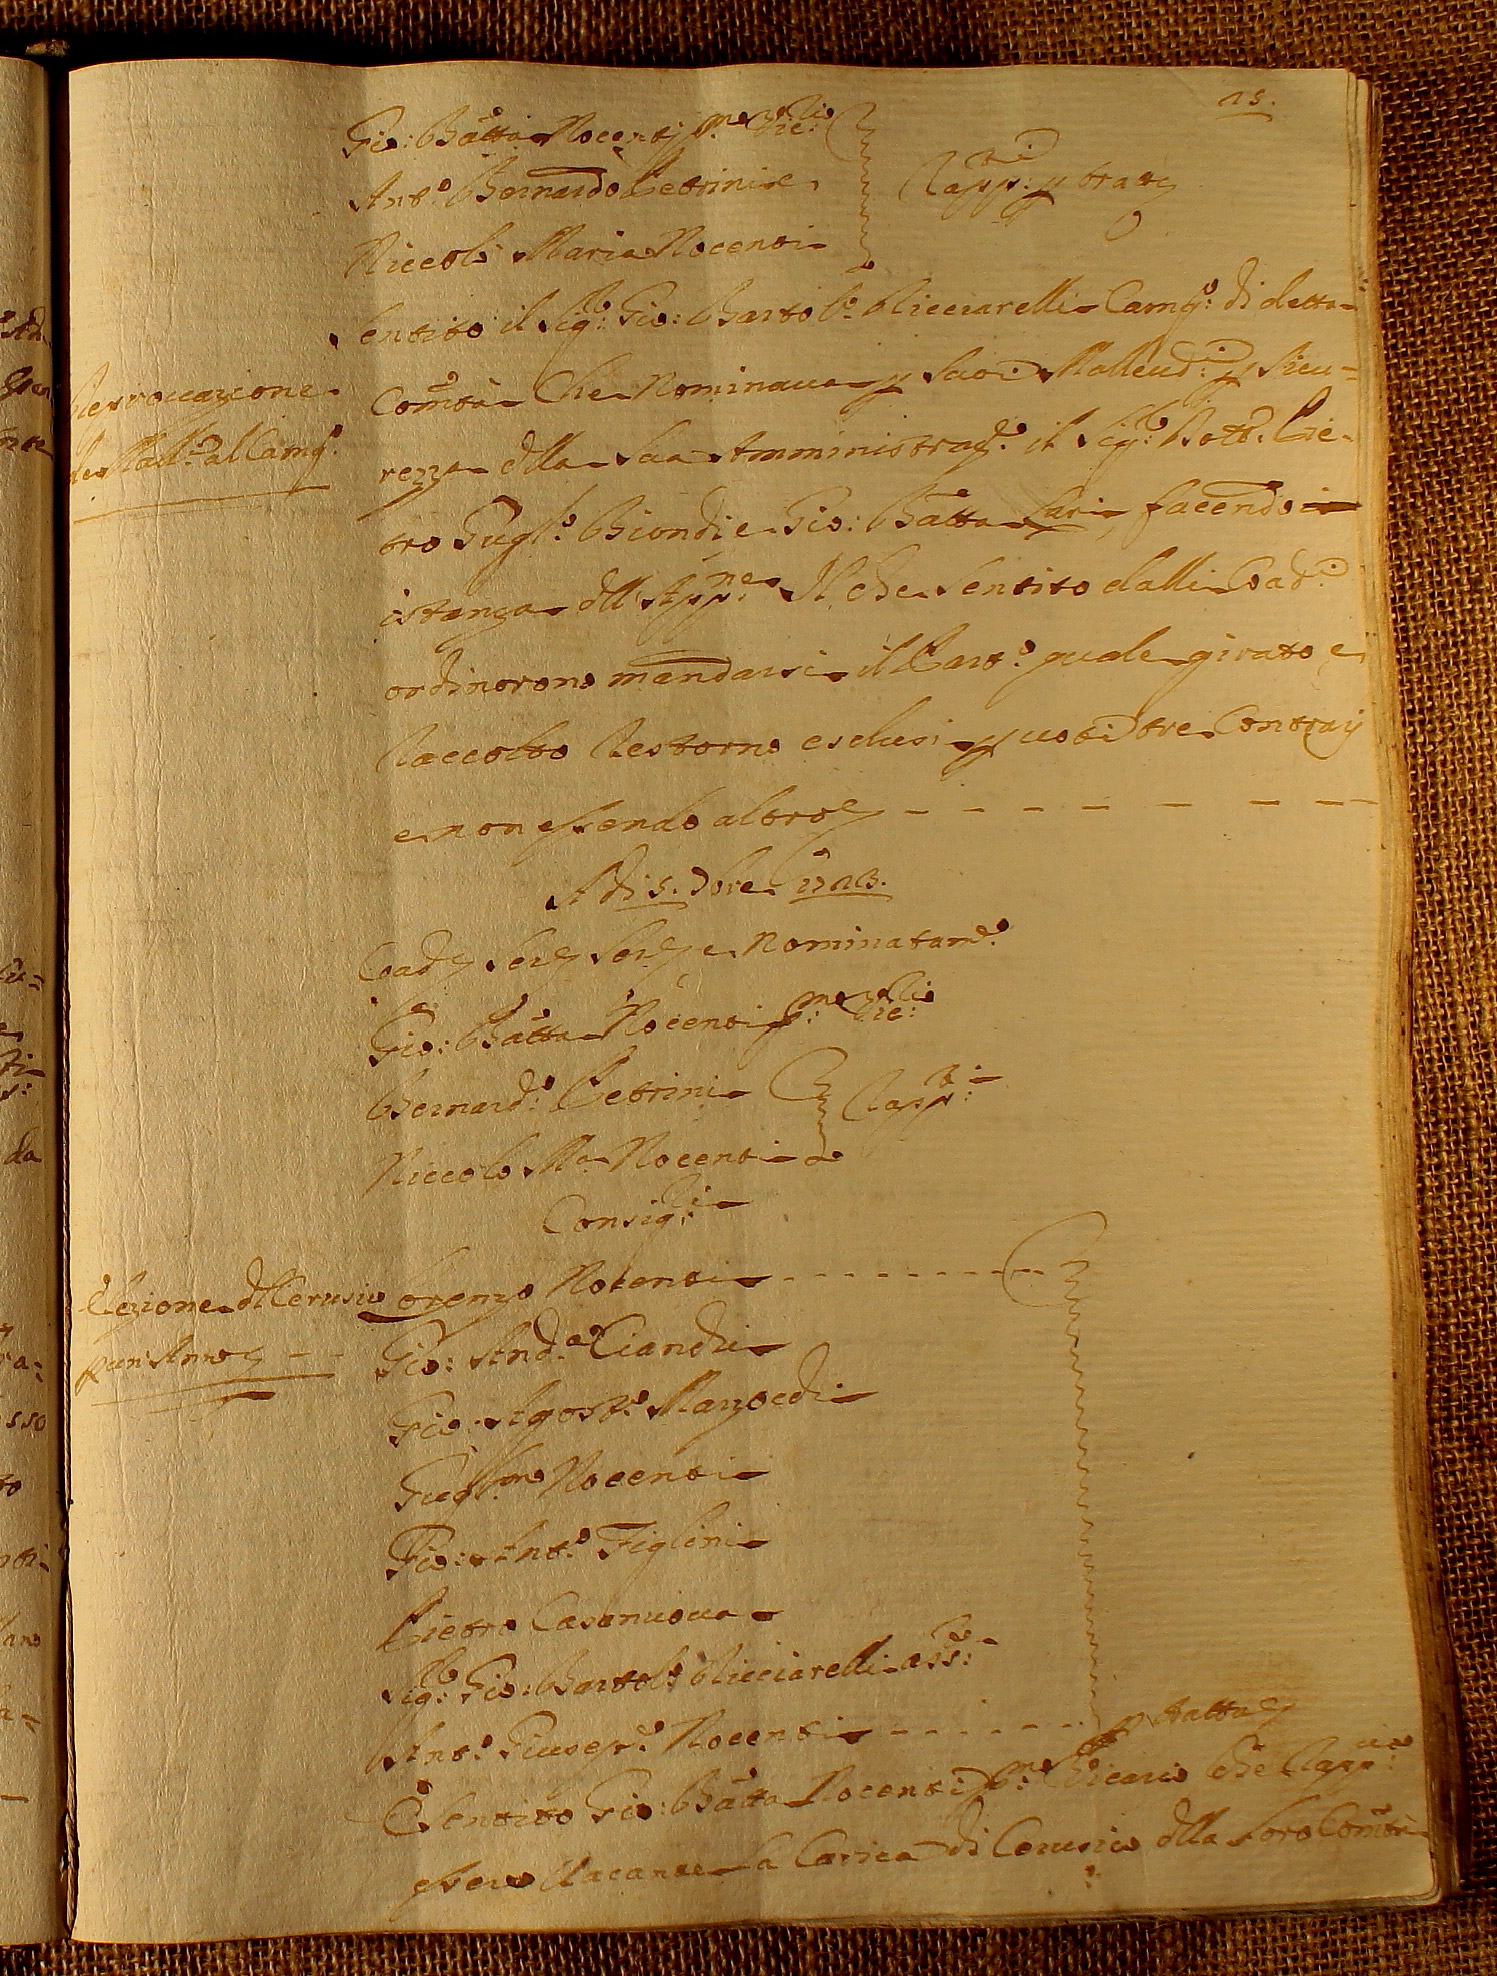 15.
Gio: Batta Nocenti p.mo Vic:rio
Ant.o Bernardo Petrini e
Niccolò Maria Nocenti
Rapp:ti p tratt
Sentito il Sig.re Gio: Barto.o Ricciarelli Camg.o di detta
Com.tà Che Nominaua p Suoi Malleud.ri p Sicu=
rezza dlla Sua Amministraz.e il Sig.re Dott.r Pie-
tro Gugl.o Biondi e Gio: Batta Lari, facendo
istanza dll' App.ne Il che Sentito dalli Coad.ti
ordinorono mandarsi il Part.o quale girato e
Raccolto Restorno esclusi p uoti tre Contrarij
e non essendo altro
Approuazione
de Mall.ri al Camg.o
A di 5. 1713.
Coad Ser Ser e Nominatam.e
Gio: Batta Nocenti p.mo Vic:rio
Bernard.o Petrini
Niccolò M.a Nocenti
Rapp:ti
Consig:ri
Elezione dl Cerusico
p un Anno
Lorenzo Nocenti
Gio: And.a Cianchi
Gio: Agost.o Marzocchi
Gugl.mo Nocenti
Gio: Ant.o Figlini
Pietro Casanuoua
Sig.re Gio: Bartol.o Ricciarelli ass:
Ant.o Giusep.e Nocenti
p tratta
E Sentito Gio: Batta Nocenti p.mo Vicario che Rapp:
essere Vacante la Carica di Cerusico dlla Loro Com.tà